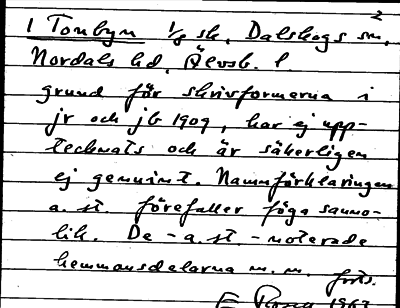 2
1 Tombyn 1/8 sk, Dalskogs sn,
Nordals hd, Älvsb. l.
grund för skrivformerna i
jr och jb 1909, har ej upp-
tecknats och är säkerligen
ej genuint. Namnförklaringen
a. st. förefaller föga sanno-
lik. De - a. st. - noterade
hemmansdelarna m. m. forts.
1963